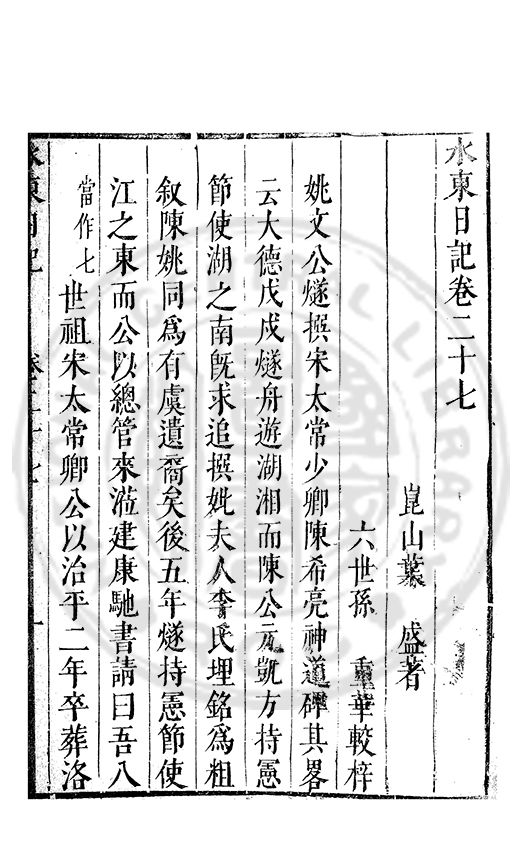 水東日記卷二十七
崑山葉　盛著
六世孫　重華較梓
姚文公燧撰宋太常少卿陳希亮神道碑其畧
云大德戊戌燧舟遊湖湘而陳公元凱方持憲
節使湖之南旣求追撰妣夫人李氏埋銘爲粗
叙陳姚同爲有虞遺裔矣後五年燧持憲節使
江之東而公以總管來涖建康馳書請曰吾八
當作七世祖宋太常卿公以治平二年卒葬洛
水東日記　卷二十七　一